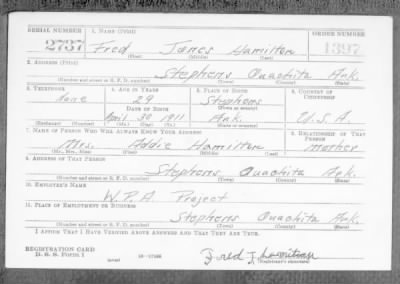 SERIAL NUMBER 1. NAME (Print) ORDER NUMBER
2737 Fred James Hamilton 1397
(First) (Middle) (Last)
2. ADDRESS (Print)
Stephens Ouachita Ark.
(Number and street or R. F. D. number) (Town) (County) (State)
3. TELEPHONE 4. AGE IN YEARS 5. PLACE OF BIRTH 6. COUNTRY OF CITIZENSHIP
None 29 Stephens
DATE OF BIRTH (Town or county)
April 30 1911 Ark. U.S.A.
(Exchange) (Number) (Mo.) (Day) (Yr.) (State or country)
7. NAME OF PERSON WHO WILL ALWAYS KNOW YOUR ADDRESS 8. RELATIONSHIP OF THAT PERSON
Mrs. Addie Hamilton Mother
(Mr., Mrs., Miss) (First) (Middle) (Last)
9. ADDRESS OF THAT PERSON
Stephens Ouachita Ark.
(Number and street or R. F. D. number) (Town) (County) (State)
10. EMPLOYER'S NAME
W.P.A Project
11. PLACE OF EMPLOYMENT OR BUSINESS
Stephens Ouachita Ark.
(Number and street or R. F. D. number) (Town) (County) (State)
I AFFIRM THAT I HAVE VERIFIED ABOVE ANSWERS AND THAT THEY ARE TRUE.
REGISTRATION CARD
D. S. S. Form 1 (over) 16-17105 Fred J. Hamilton
(Registrant's signature)